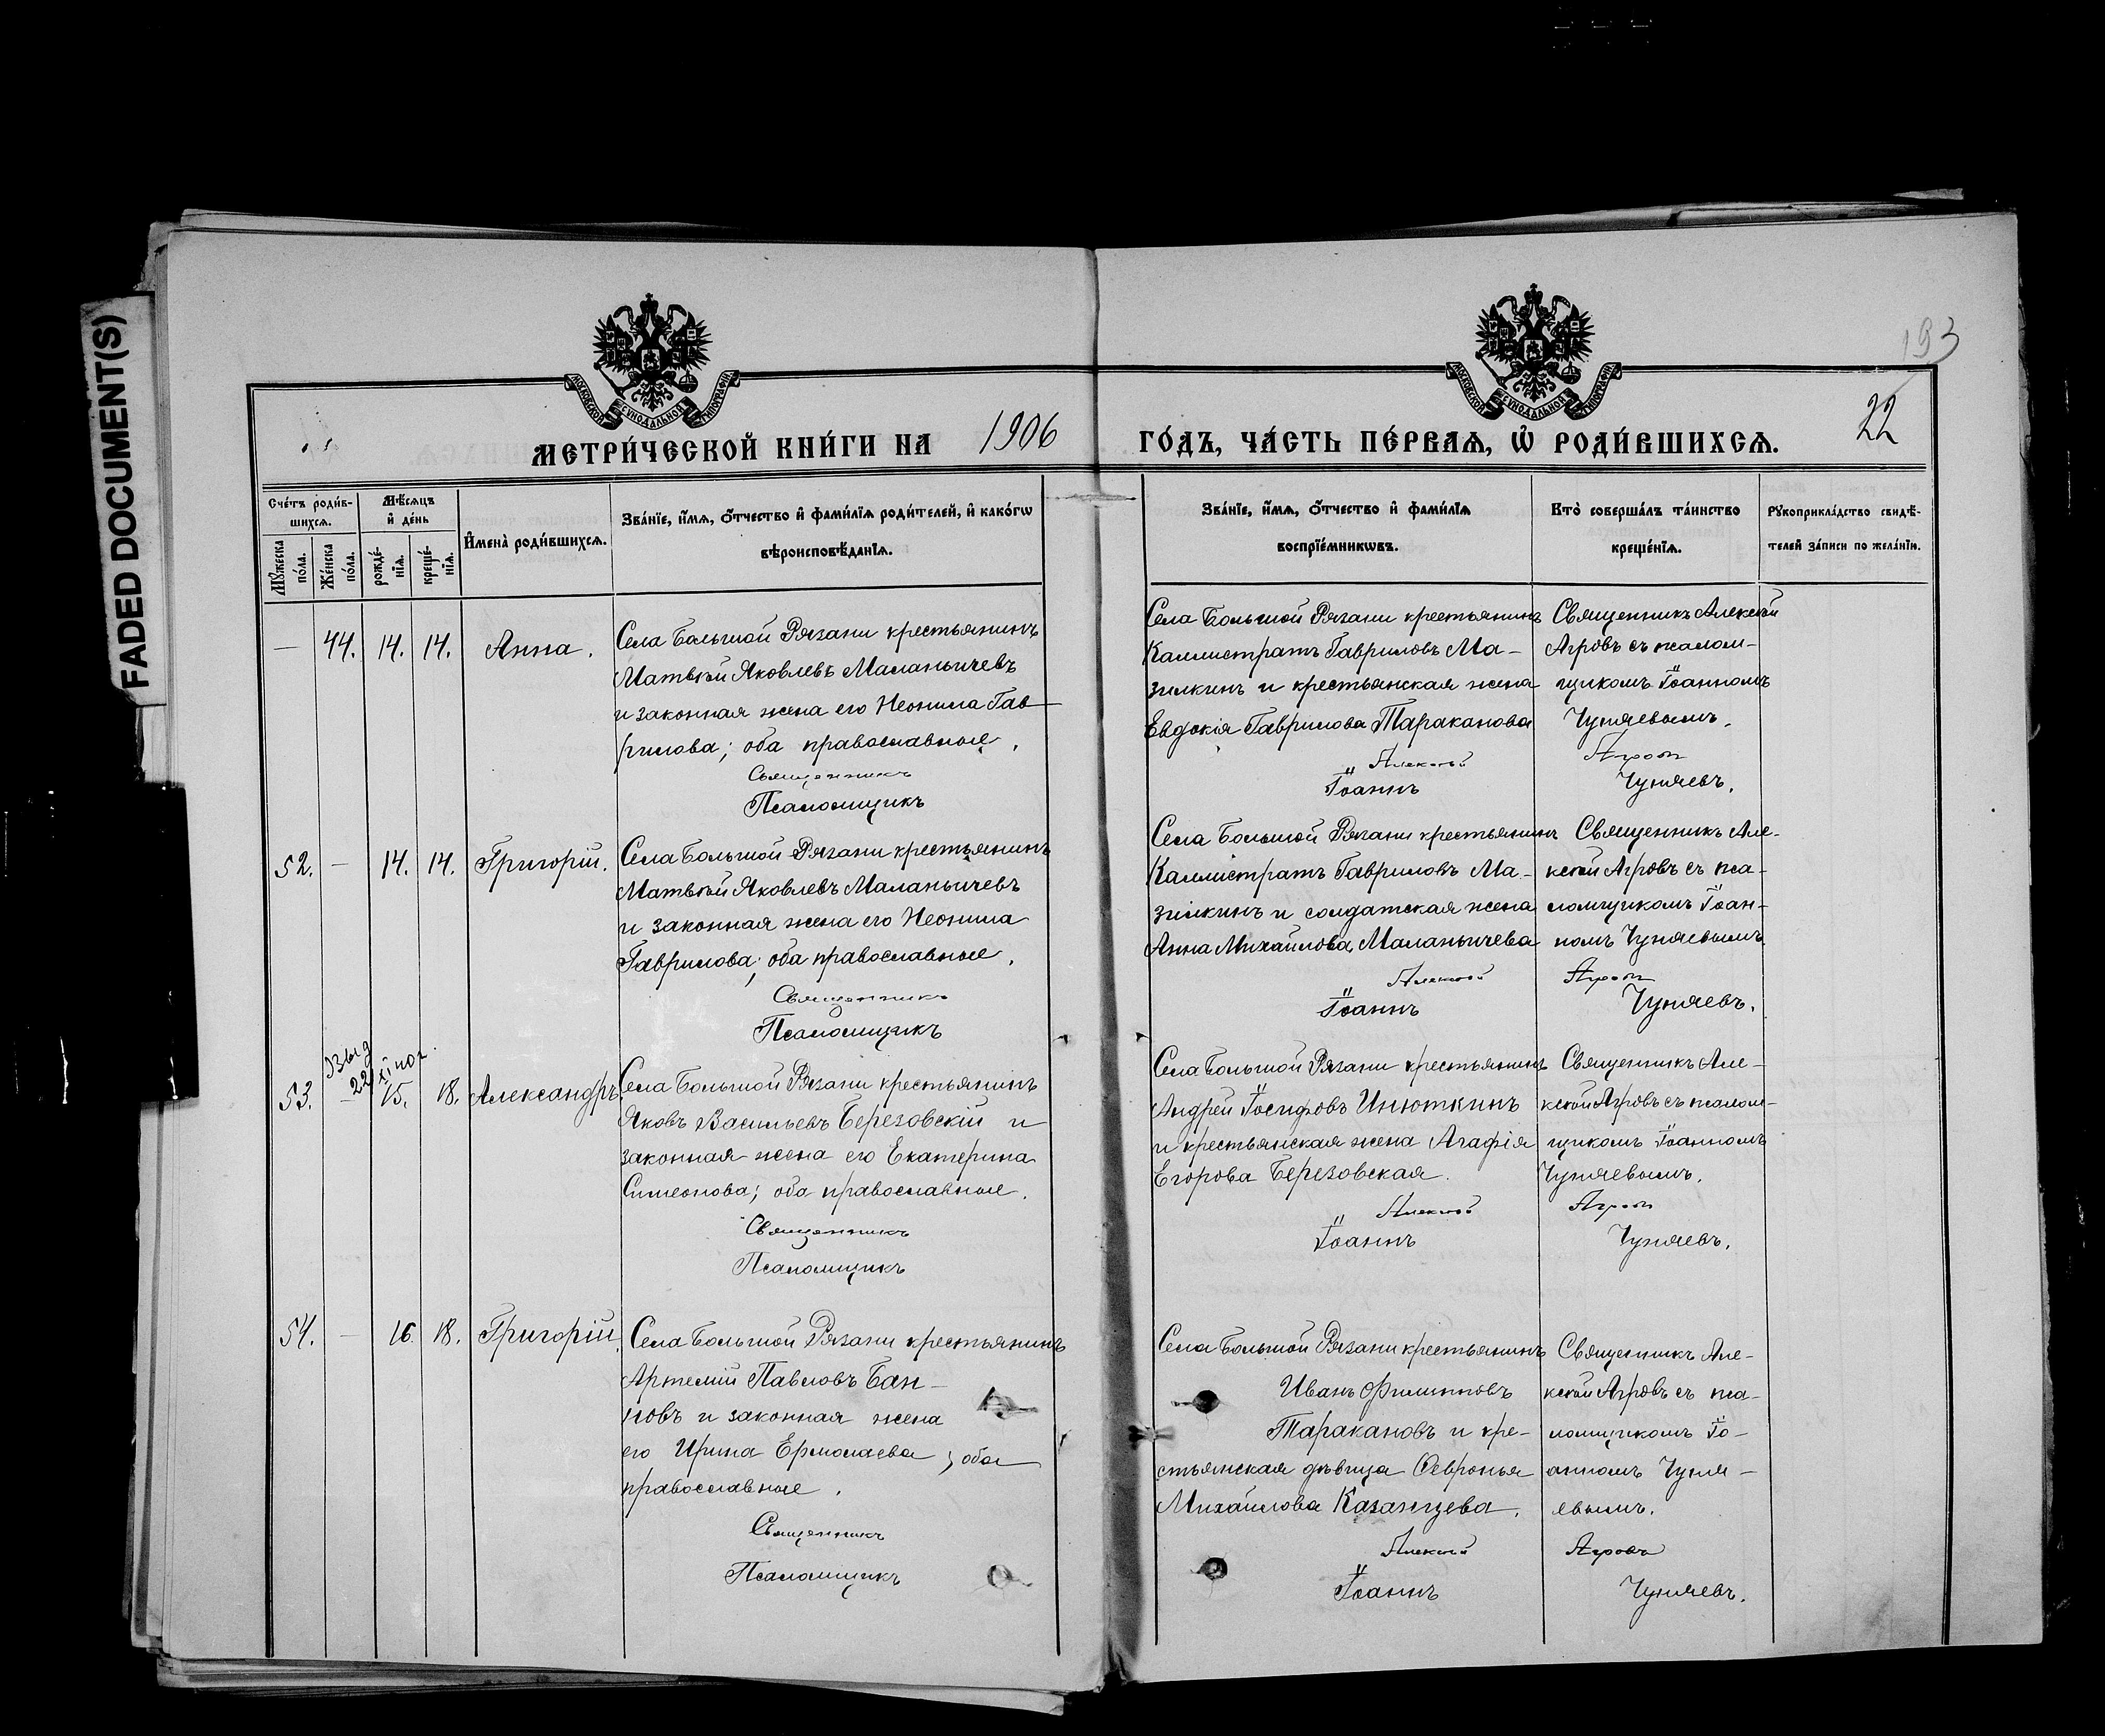 FADED DOCUMENT(S)
193
МОСКОВСКОЙ СѴНОДАЛЬНОЙ ТИПОГРАФІИ
МОСКОВСКОЙ СѴНОДАЛЬНОЙ ТИПОГРАФІИ
МЕТРИ́ЧЕСКОЙ КНИ́ГИ НА 1906 ГО́ДЪ, ЧА́СТЬ ПЕ́РВАѦ, Ѡ҆ РОДИ́ВШИХСѦ.
22
Сче́тъ роди́в-
шихсѧ.
Мꙋ́жеска
по́ла.
Же́нска
по́ла.
Мѣ́сѧцъ
и҆ де́нь
рожде́-
нїѧ.
креще́-
нїѧ.
И҆мена̀ роди́вшихсѧ.
Зва́нїе, и҆́мѧ, ѻ҆́тчество и҆ фами́лїѧ роди́телей, и҆ како́гѡ
вѣроисповѣ́данїѧ.
Зва́нїе, и҆́мѧ, ѻ҆́тчество и҆ фами́лїѧ
воспрїе́мникѡвъ.
Кто̀ соверша́лъ та́инство
креще́нїѧ.
Рꙋкоприкла́дство свидѣ́-
телей за́писи по жела́нїю.
— 44. 14. 14. Анна.
Села Большой Рязани крестьянинъ
Матвѣй Яковлевъ Маланьичевъ
и законная жена его Неонила Гав-
рилова; оба православные.
Священникъ
Псаломщикъ
Села Большой Рязани крестьянинъ
Каллистратъ Гавриловъ Ма-
зилкинъ и крестьянская жена
Евдокія Гаврилова Тараканова
Алексѣй
Іоаннъ
Священникъ Алексѣй
Агровъ съ псалом-
щикомъ Іоанномъ
Чуняевымъ.
Агровъ
Чуняевъ.
52. — 14. 14. Григорій.
Села Большой Рязани крестьянинъ
Матвѣй Яковлевъ Маланьичевъ
и законная жена его Неонила
Гаврилова; оба православные.
Священникъ
Псаломщикъ
Села Большой Рязани крестьянинъ
Каллистратъ Гавриловъ Ма-
зилкинъ и солдатская жена
Анна Михайлова Маланьичева
Алексѣй
Іоаннъ
Священникъ Але-
ксѣй Агровъ съ пса-
ломщикомъ Іоан-
номъ Чуняевымъ.
Агровъ
Чуняевъ.
53. — 15. 18. Александръ.
Села Большой Рязани крестьянинъ
Яковъ Васильевъ Березовскій и
законная жена его Екатерина
Симеонова; оба православные.
Священникъ
Псаломщикъ
Села Большой Рязани крестьянинъ
Андрей Іосифовъ Инюткинъ
и крестьянская жена Агафія
Егорова Березовская.
Алексѣй
Іоаннъ
Священникъ Але-
ксѣй Агровъ съ псалом-
щикомъ Іоанномъ
Чуняевымъ.
Агровъ
Чуняевъ.
54. — 16. 18. Григорій.
Села Большой Рязани крестьянинъ
Артемій Павловъ Бан-
новъ и законная жена
его Ирина Ермолаева; оба
православные.
Священникъ
Псаломщикъ
Села Большой Рязани крестьянинъ
Иванъ Филипповъ
Таракановъ и кре-
стьянская дѣвица Ѳевронья
Михайлова Казанцева.
Алексѣй
Іоаннъ
Священникъ Але-
ксѣй Агровъ съ пса-
ломщикомъ Іо-
анномъ Чуня-
евымъ.
Агровъ
Чуняевъ.